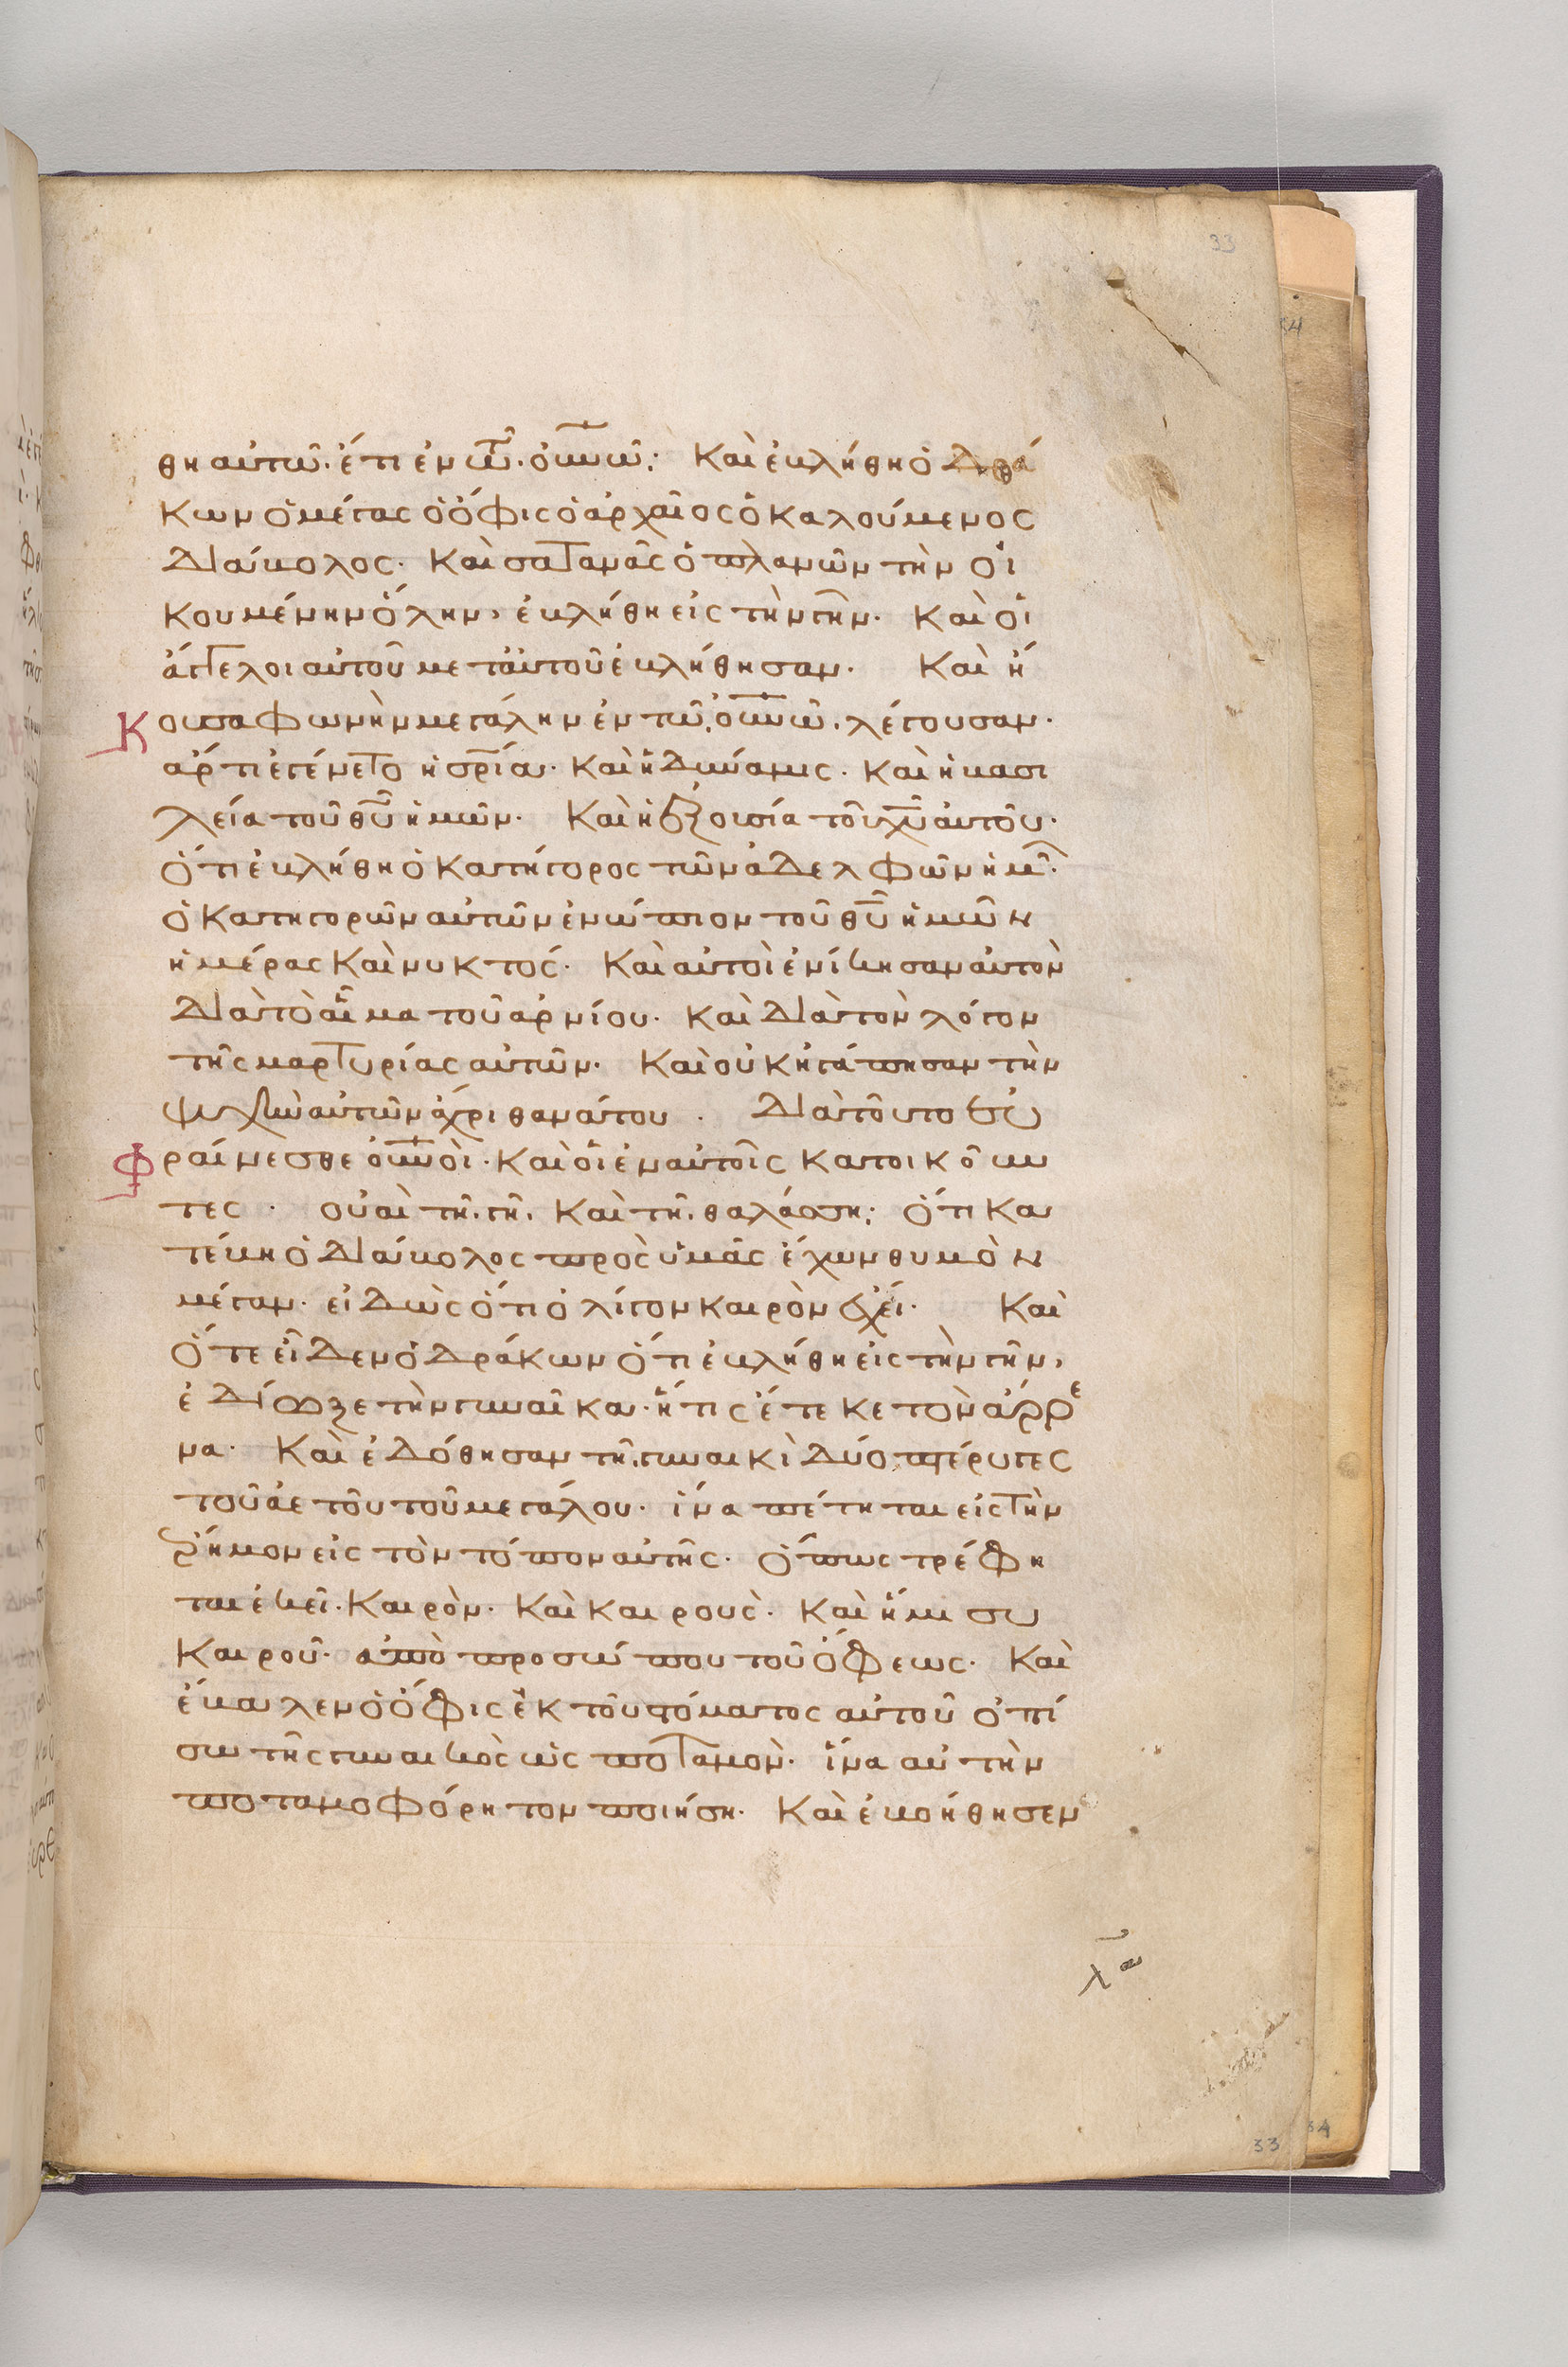 33
θη αὐτῶ. ἔτι ἐν τῶ. οὐνῶ; Καὶ ἐβλήθη ὁ δρά
κων ὁ μέγας ὁ ὄφις ὁ ἀρχαῖος ὁ καλούμενος
διάβολος. Καὶ σατανᾶς ὁ πλανῶν τὴν οἰ
κουμένην ὅλην, ἐβλήθη εἰς τὴν γῆν. Καὶ οἱ
ἄγγελοι αὐτοῦ μετ' αὐτοῦ ἐβλήθησαν. Καὶ ἤ
Κουσα φωνὴν μεγάλην ἐν τῶ. οὐνῶ. λέγουσαν.
ἄρτι ἐγένετο ἡ σρία. Καὶ ἡ δύναμις. Καὶ ἡ βασι
λεία τοῦ θῦ ἡμῶν. Καὶ ἡ ἐξουσία τοῦ χῦ αὐτοῦ.
ὅτι ἐβλήθη ὁ κατήγορος τῶν ἀδελφῶν ἡμῶ.
ὁ κατηγορῶν αὐτῶν ἐνώπιον τοῦ θῦ ἡμῶν
ἡμέρας καὶ νυκτός. Καὶ αὐτοὶ ἐνίκησαν αὐτὸν
διὰ τὸ αἷμα τοῦ ἀρνίου. καὶ διὰ τὸν λόγον
τῆς μαρτυρίας αὐτῶν. Καὶ οὐκ ἠγάπησαν τὴν
ψυχὴν αὐτῶν ἄχρι θανάτου. Διὰ τοῦτο εὐ
Φραίνεσθε οὐνοὶ. Καὶ οἱ ἐν αὐτοῖς κατοικοῦν
τες. οὐαὶ τῆ. γῆ. Καὶ τῆ. θαλάσση; ὅτι κα
τέβη ὁ διάβολος πρὸς ὑμᾶς ἔχων θυμὸν
μέγαν. εἰδὼς ὅτι ὀλίγον καιρὸν ἔχει. Καὶ
ὅτε εἶδεν ὁ δράκων ὅτι ἐβλήθη εἰς τὴν γῆν,
ἐδίωξε τὴν γυναῖκα. ἥτις ἔτεκε τὸν ἄρρε
να. Καὶ ἐδόθησαν τῆ. γυναικὶ δύο πτέρυγες
τοῦ ἀετοῦ τοῦ μεγάλου. ἵνα πέτηται εἰς τὴν
ἔρημον εἰς τὸν τόπον αὐτῆς. ὅπως τρέφη
ται ἐκεῖ. Καιρὸν. Καὶ καιρους. Καὶ ἥμισυ
καιροῦ. ἀπὸ προσώπου τοῦ ὄφεως. Καὶ
ἔβαλεν ὁ ὄφις ἐκ τοῦ στόματος αὐτοῦ ὀπί
σω τῆς γυναικὸς ὡς ποταμὸν. ἵνα αὐτὴν
ποταμοφόρητον ποιήση. Καὶ ἐβοήθησεν
λα
33
34
34